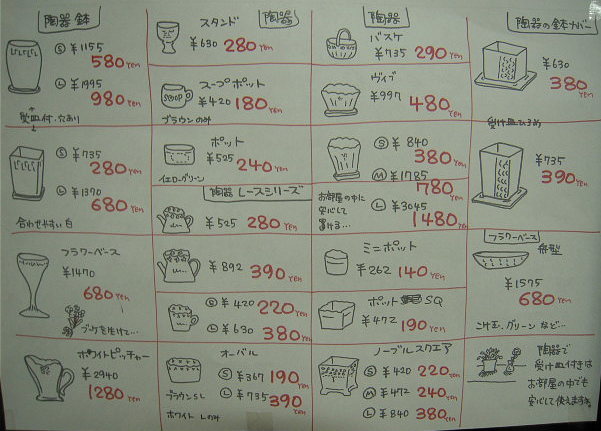 陶器 鉢
Ⓢ ¥1155
580yen
Ⓛ ¥1995
980yen
受皿付・穴あり
Ⓢ ¥735
280yen
Ⓛ ¥1390
680yen
合わせやすい白
フラワーベース
¥1470
680yen
ブーケを生けて…
ホワイトピッチャー
¥2940
1280yen
スタンド
陶器
¥630 280yen
スープポット
SOUP
¥420 180yen
ブラウンのみ
ポット
¥525 240yen
イエローグリーン
陶器 レースシリーズ
¥525 280yen
¥892 390yen
Ⓢ ¥420 220yen
Ⓛ ¥630 380yen
オーバル
Ⓢ ¥367 190yen
Ⓛ ¥735 390yen
ブラウンS L
ホワイト Lのみ
陶器
バスケ
¥735 290yen
ヴィブ
¥997 480yen
Ⓢ ¥840
380yen
Ⓜ ¥1785
780yen
Ⓛ ¥3045
1480yen
お部屋の中に
安心して
置ける…
ミニポット
¥262 140yen
ポット SQ
¥472 190yen
ノーブルスクエア
Ⓢ ¥420 220yen
Ⓜ ¥472 240yen
Ⓛ ¥840 380yen
陶器の鉢カバー
¥630
380yen
受け皿ひろめ
¥735
390yen
フラワーベース
舟型
¥1575
680yen
こけ玉、グリーンなど…
陶器で
受け皿付きは
お部屋の中でも
安心して使えますね。